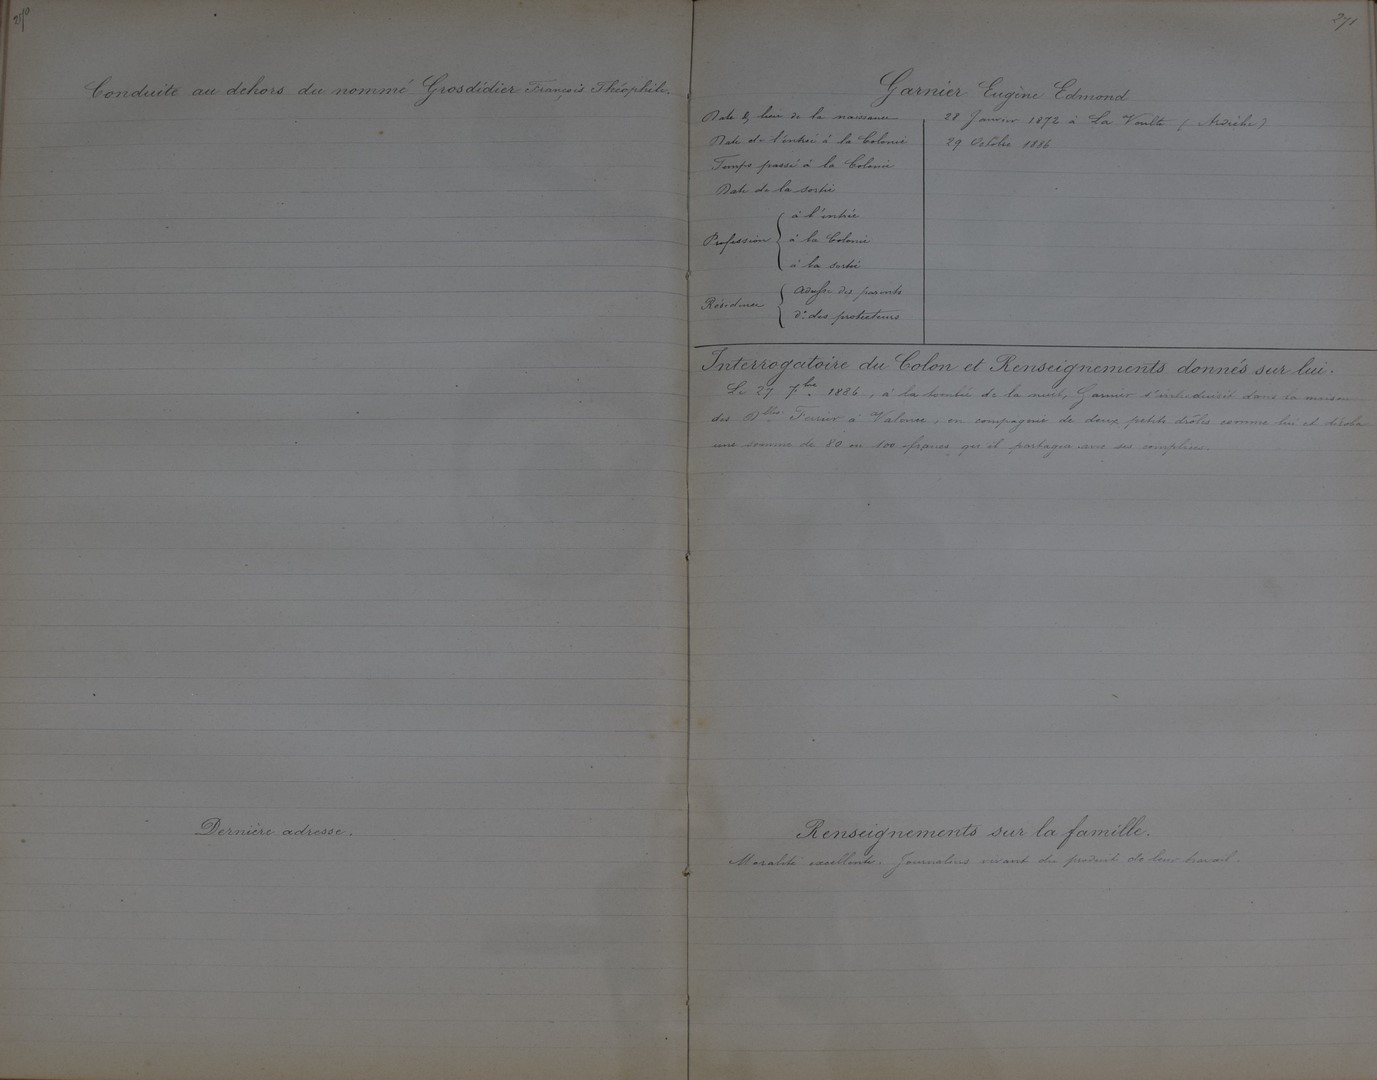 270
Conduite au dehors du nommé Grosdidier François Théophile.
Dernière adresse.
271
Garnier Eugène Edmond
Date & lieu de la naissance 28 Janvier 1872 à La Voulte (Ardèche)
Date de l'entrée à la Colonie 29 Octobre 1886
Temps passé à la Colonie
Date de la sortie
Profession { à l'entrée
à la Colonie
à la sortie
Résidence { Adresse des parents
d° des protecteurs
Interrogatoire du Colon et Renseignements donnés sur lui.
Le 27 7bre 1886, à la tombée de la nuit, Garnier s'introduisit dans la maison
des Dlles Ferrier à Valence, en compagnie de deux petits drôles comme lui et déroba
une somme de 80 ou 100 francs qu'il partagea avec ses complices.
Renseignements sur la famille.
Moralité excellente. Journaliers vivant du produit de leur travail.